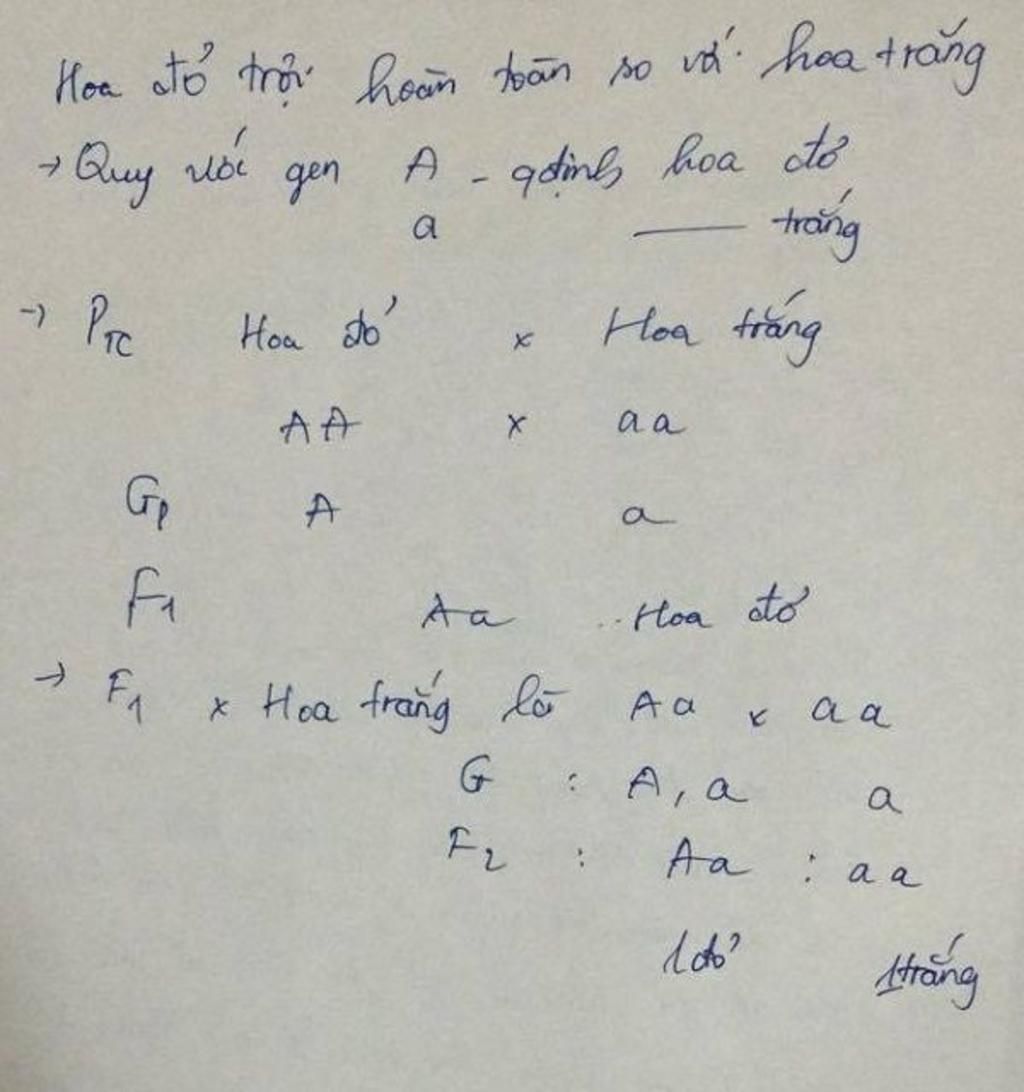 Hoa đỏ trội hoàn toàn so với hoa trắng
→ Quy ước gen A - qđịnh hoa đỏ
a —— trắng
→ PTC Hoa đỏ x Hoa trắng
AA x aa
Gp A a
F1 Aa Hoa đỏ
→ F1 x Hoa trắng là Aa x aa
G : A, a a
F2 : Aa : aa
1 đỏ 1 trắng